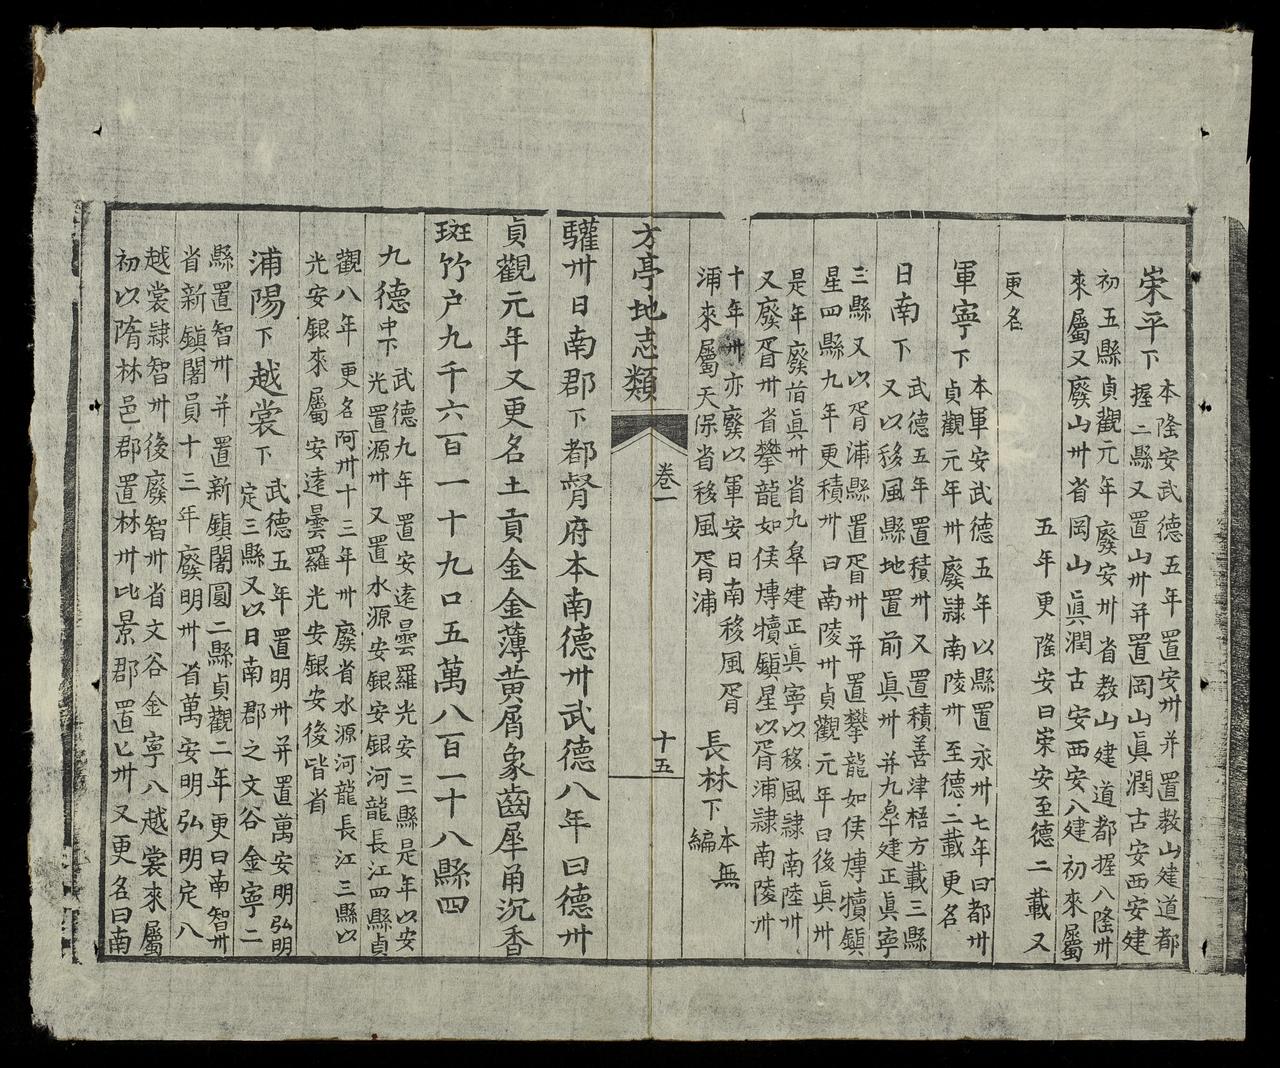 崇平下
本隆安武德五年置安州并置敎山建道都
握二縣又置山州并置岡山眞潤古安西安建
初五縣貞觀元年廢安州省敎山建道都握八隆州
來屬又廢山州省岡山眞潤古安西安八建初來屬
五年更隆安曰崇安至德二載又
更名
軍寧下
本軍安武德五年以縣置永州七年曰都州
貞觀元年州廢隷南陵州至德二載更名
日南下
武德五年置積州又置積善津梧方載三縣
又以移風縣地置前眞州并九皐建正眞寧
三縣又以胥浦縣置胥州并置攀龍如侯博犢鎭
星四縣九年更積州曰南陵州貞觀元年曰後眞州
是年廢前眞州省九皐建正眞寧以移風隷南陸州
又廢胥州省攀龍如侯博犢鎭星以胥浦隷南陵州
十年州亦廢以軍安日南移風胥
浦來屬天保省移風胥浦
長林下
本無
編
方亭地志類
卷一
十五
驩州日南郡下都督府本南德州武德八年曰德州
貞觀元年又更名土貢金金薄黄屑象齒犀角沉香
斑竹户九千六百一十九口五萬八百一十八縣四
九德中下
武德九年置安遠曇羅光安三縣是年以安
光置源州又置水源安銀安銀河龍長江四縣貞
觀八年更名阿州十三年州廢省水源河龍長江三縣以
光安銀來屬安遠曇羅光安銀安後皆省
浦陽下
越裳下
武德五年置明州并置萬安明弘明
定三縣又以日南郡之文谷金寧二
縣置智州并置新鎭闍圓二縣貞觀二年更曰南智州
省新鎭闍員十三年廢明州省萬安明弘明定八
越裳隷智州後廢智州省文谷金寧八越裳來屬
初以隋林邑郡置林州比景郡置匕州又更名曰南